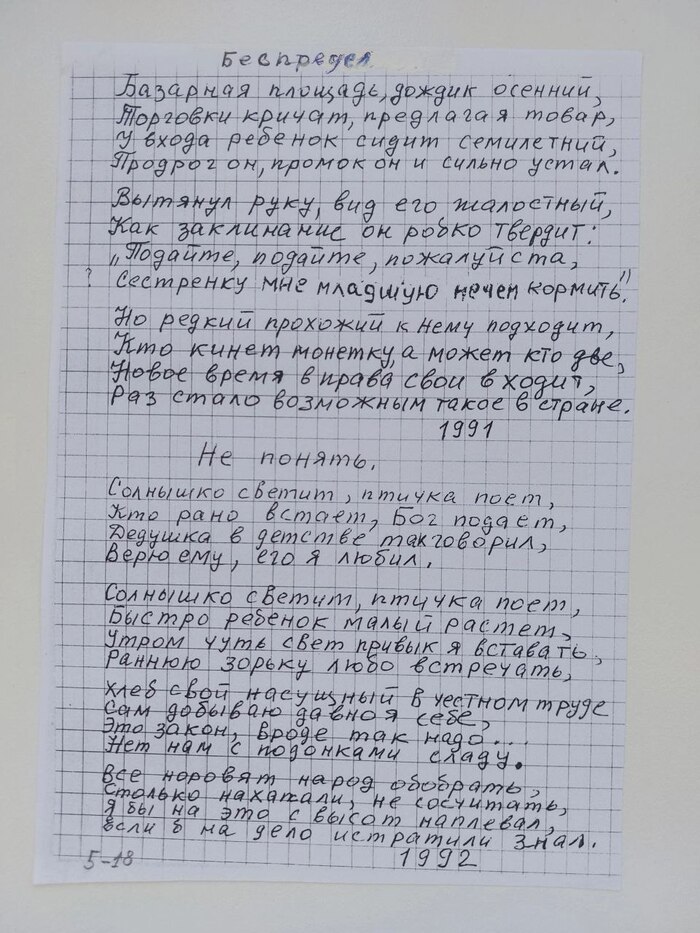 Беспредел
Базарная площадь, дождик осенний,
Торговки кричат, предлагая товар,
У входа ребенок сидит семилетний,
Продрог он, промок он и сильно устал.
Вытянул руку, вид его жалостный,
Как заклинание он робко твердит:
„Подайте, подайте, пожалуйста,
? Сестренку мне младшую нечем кормить".
Но редкий прохожий к нему подходит,
Кто кинет монетку, а может кто две,
Новое время в права свои входит,
Раз стало возможным такое в стране.
1991
Не понять.
Солнышко светит, птичка поет,
Кто рано встает, Бог подает,
Дедушка в детстве так говорил,
Верю ему, его я любил.
Солнышко светит, птичка поет,
Быстро ребенок малый растет,
Утром чуть свет привык я вставать,
Раннюю зорьку любо встречать,
Хлеб свой насущный в честном труде
Сам добываю давно я себе,
Это закон, вроде так надо...
Нет нам с подонками сладу.
Все норовят народ обобрать,
Столько нахапали, не сосчитать,
Я бы на это с высот наплевал,
Если б на дело истратили знал.
5-18 1992